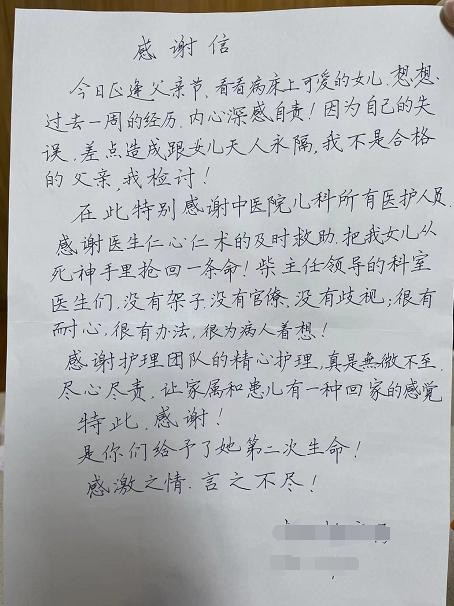 感谢信
今日正逢父亲节,看看病床上可爱的女儿.想想
过去一周的经历.内心深感自责!因为自己的失
误.差点造成跟女儿天人永隔,我不是合格
的父亲,我检讨!
在此特别感谢中医院儿科所有医护人员.
感谢医生仁心仁术的及时救助.把我女儿从
死神手里抢回一条命!柴主任领导的科室
医生们.没有架子.没有官僚.没有歧视;很有
耐心.很有办法,很为病人着想!
感谢护理团队的精心护理,真是無微不至.
尽心尽责.让家属和患儿有一种回家的感觉
特此.感谢!
是你们给予了她第二次生命!
感激之情.言之不尽!